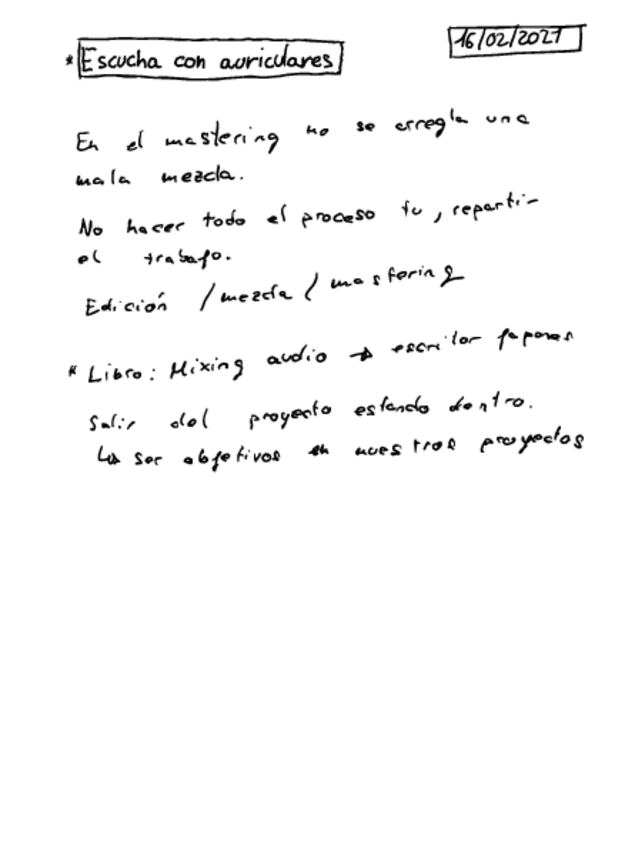 * Escucha con auriculares
16/02/2021
En el mastering no se arregla una
mala mezcla.
No hacer todo el proceso tu, repartir
el trabajo.
Edición / mezcla / mastering
* Libro: Mixing audio → escritor japones
Salir del proyecto estando dentro.
↳ ser objetivos en nuestros proyectos